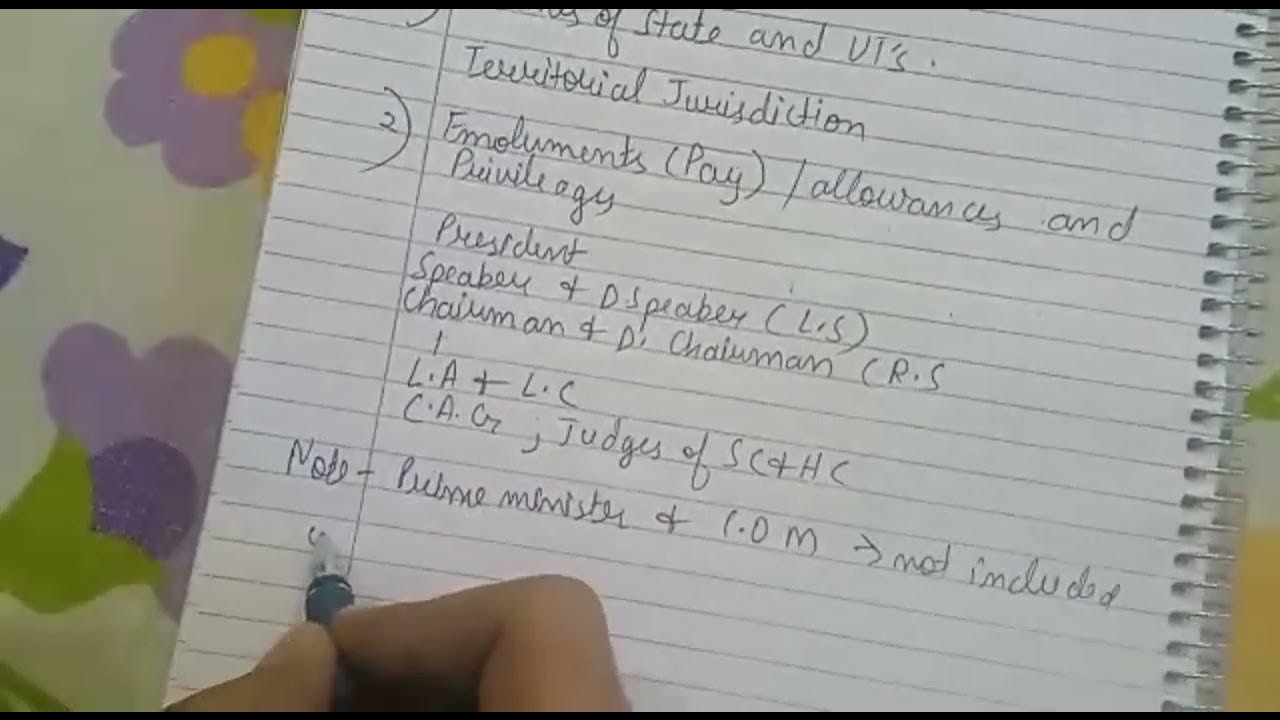 of State and UT's.
Territorial Jurisdiction
2) Emoluments (Pay) / allowances and
Privileagy
President
Speaker & D Speaker (L.S)
Chairman & D. Chairman (R.S
L.A + L.C
C.A.G, Judges of SC & HC
Note - Prime minister & C.O M → not included